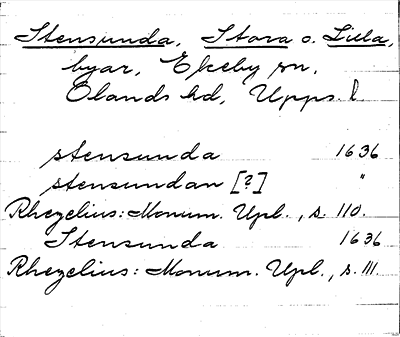 Stensunda, Stora o. Lilla,
byar, Ekeby sn,
Olands hd, Upps. l.
stensunda 1636
stensundan [?] "
Rhezelius: Monum. Upl., s. 110.
Stensunda 1636
Rhezelius: Monum. Upl., s. 111.